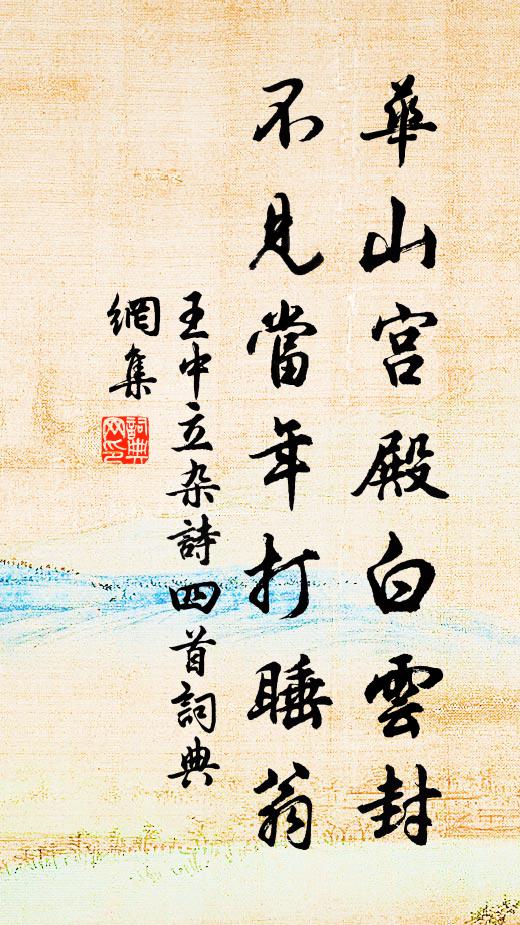 華山宮殿白雲封
不見當年打睡翁
王中立杂詩四首詞典
網集
詞典
网印